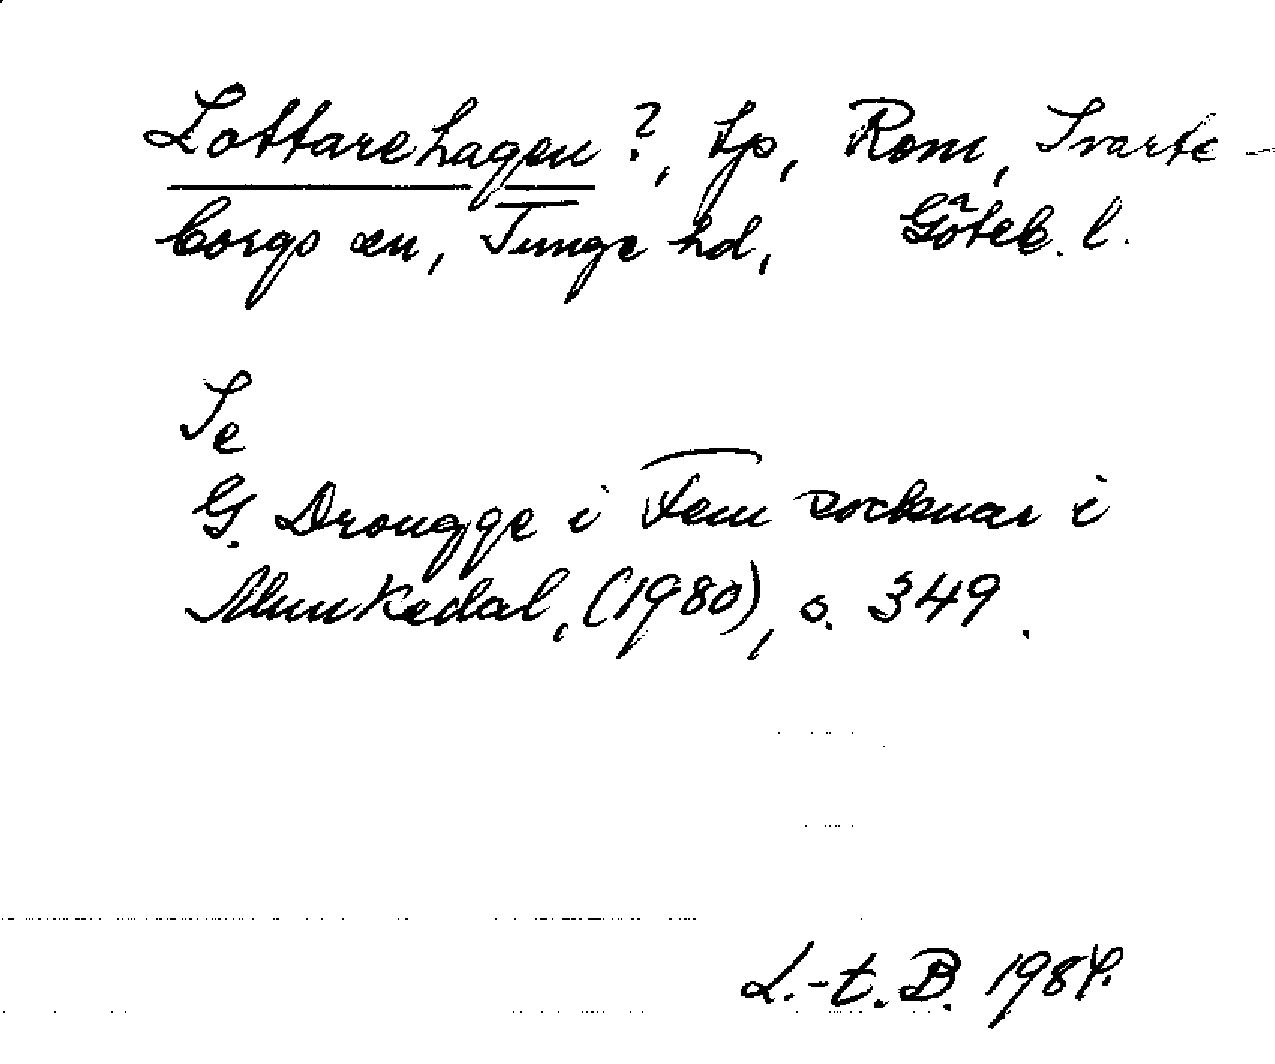 Lottarehagen ?, tp, Rom, Svarte-
borgs sn, Tunge hd, Göteb. l.
Se
G. Drougge i Fem socknar i
Munkedal, (1980), s. 349.
L.-t. B. 1984.